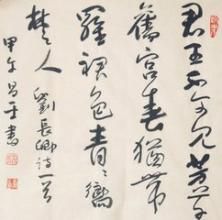 君王不可見芳草
舊宮春猶帶
羅裙色青青嚮
楚人 劉長卿詩一首
甲午 書